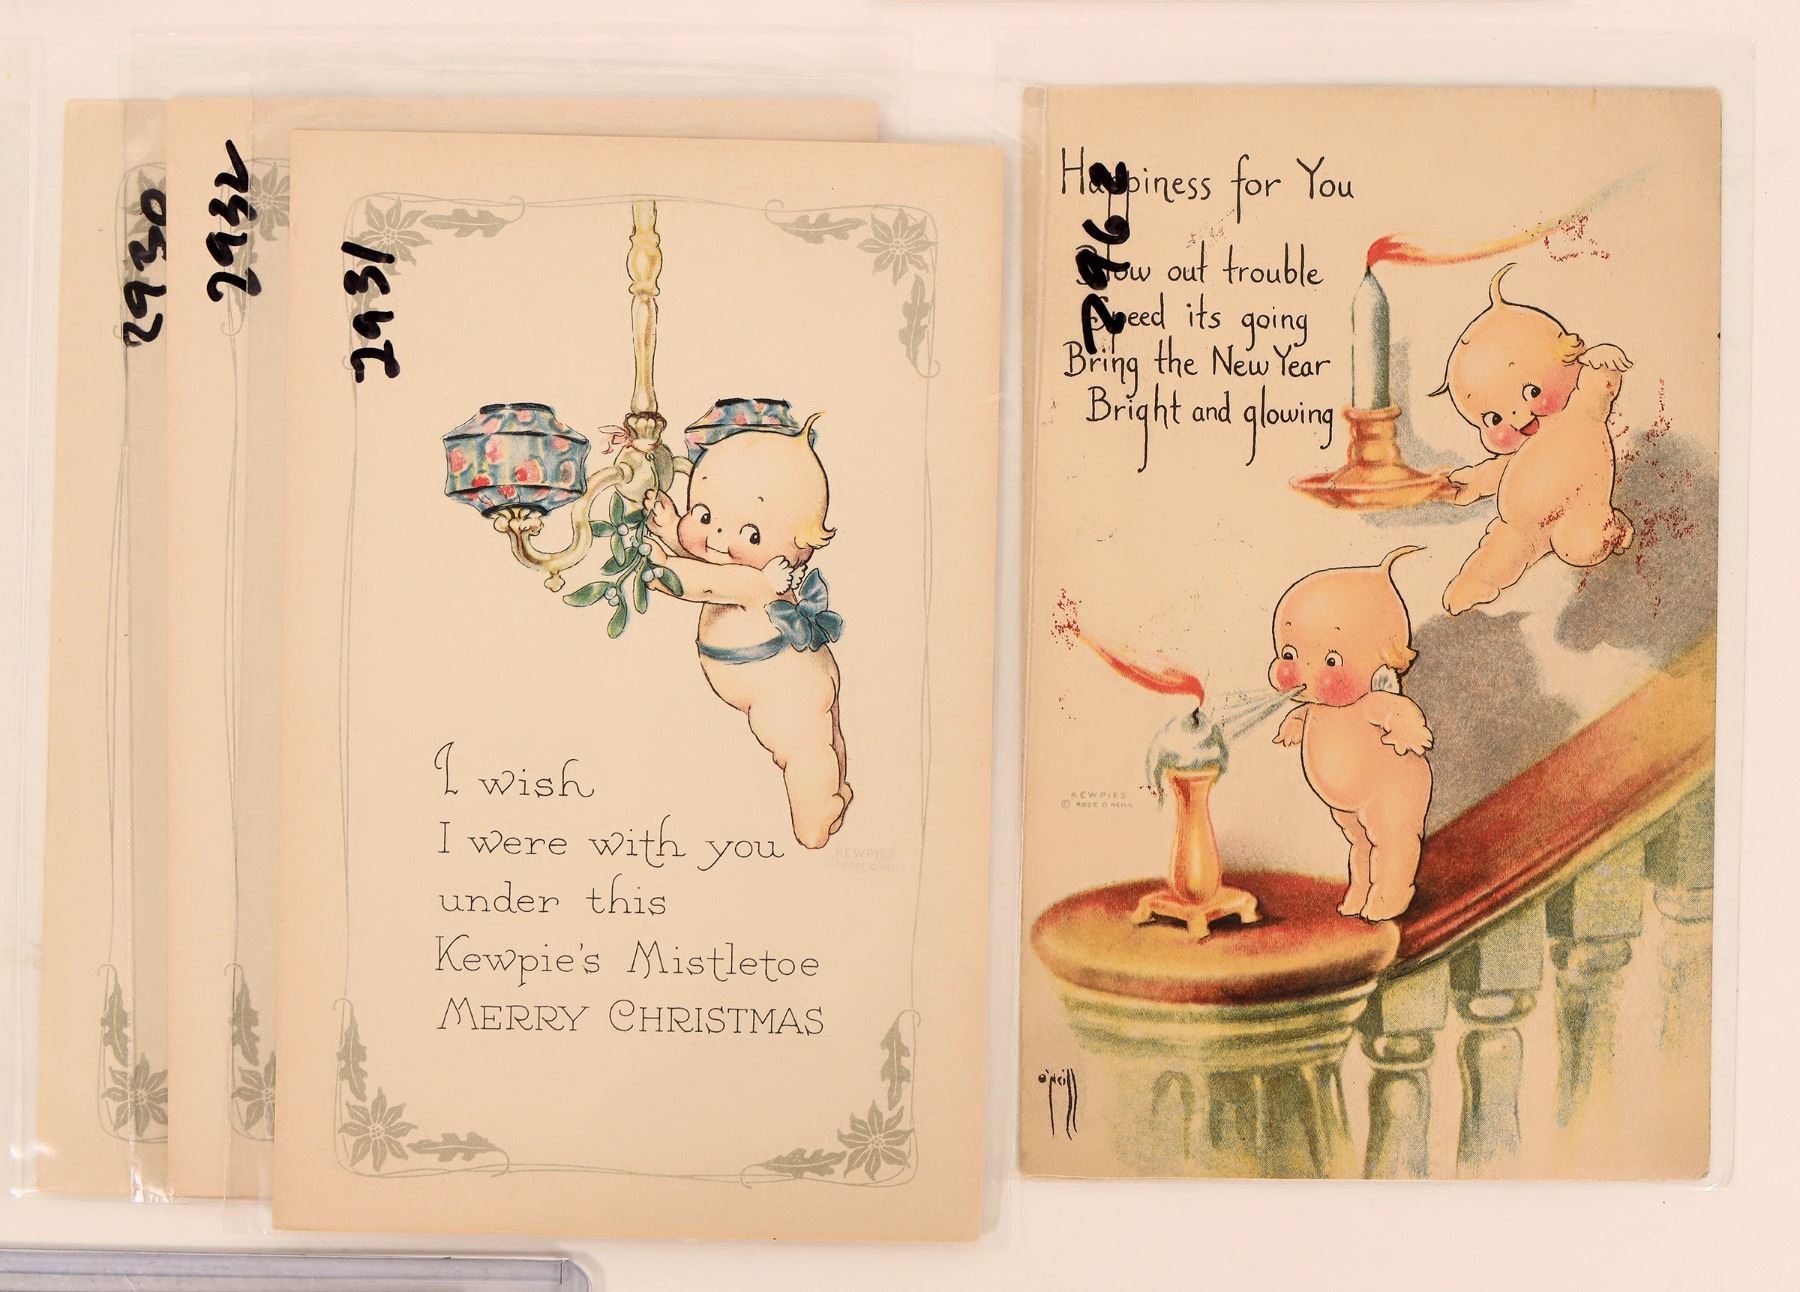 2930
2932
2931
I wish
I were with you
under this
Kewpie's Mistletoe
MERRY CHRISTMAS
KEWPIES
© ROSE O'NEILL
2962
Happiness for You
Blow out trouble
Speed its going
Bring the New Year
Bright and glowing
KEWPIES
© ROSE O NEILL
O'Neill